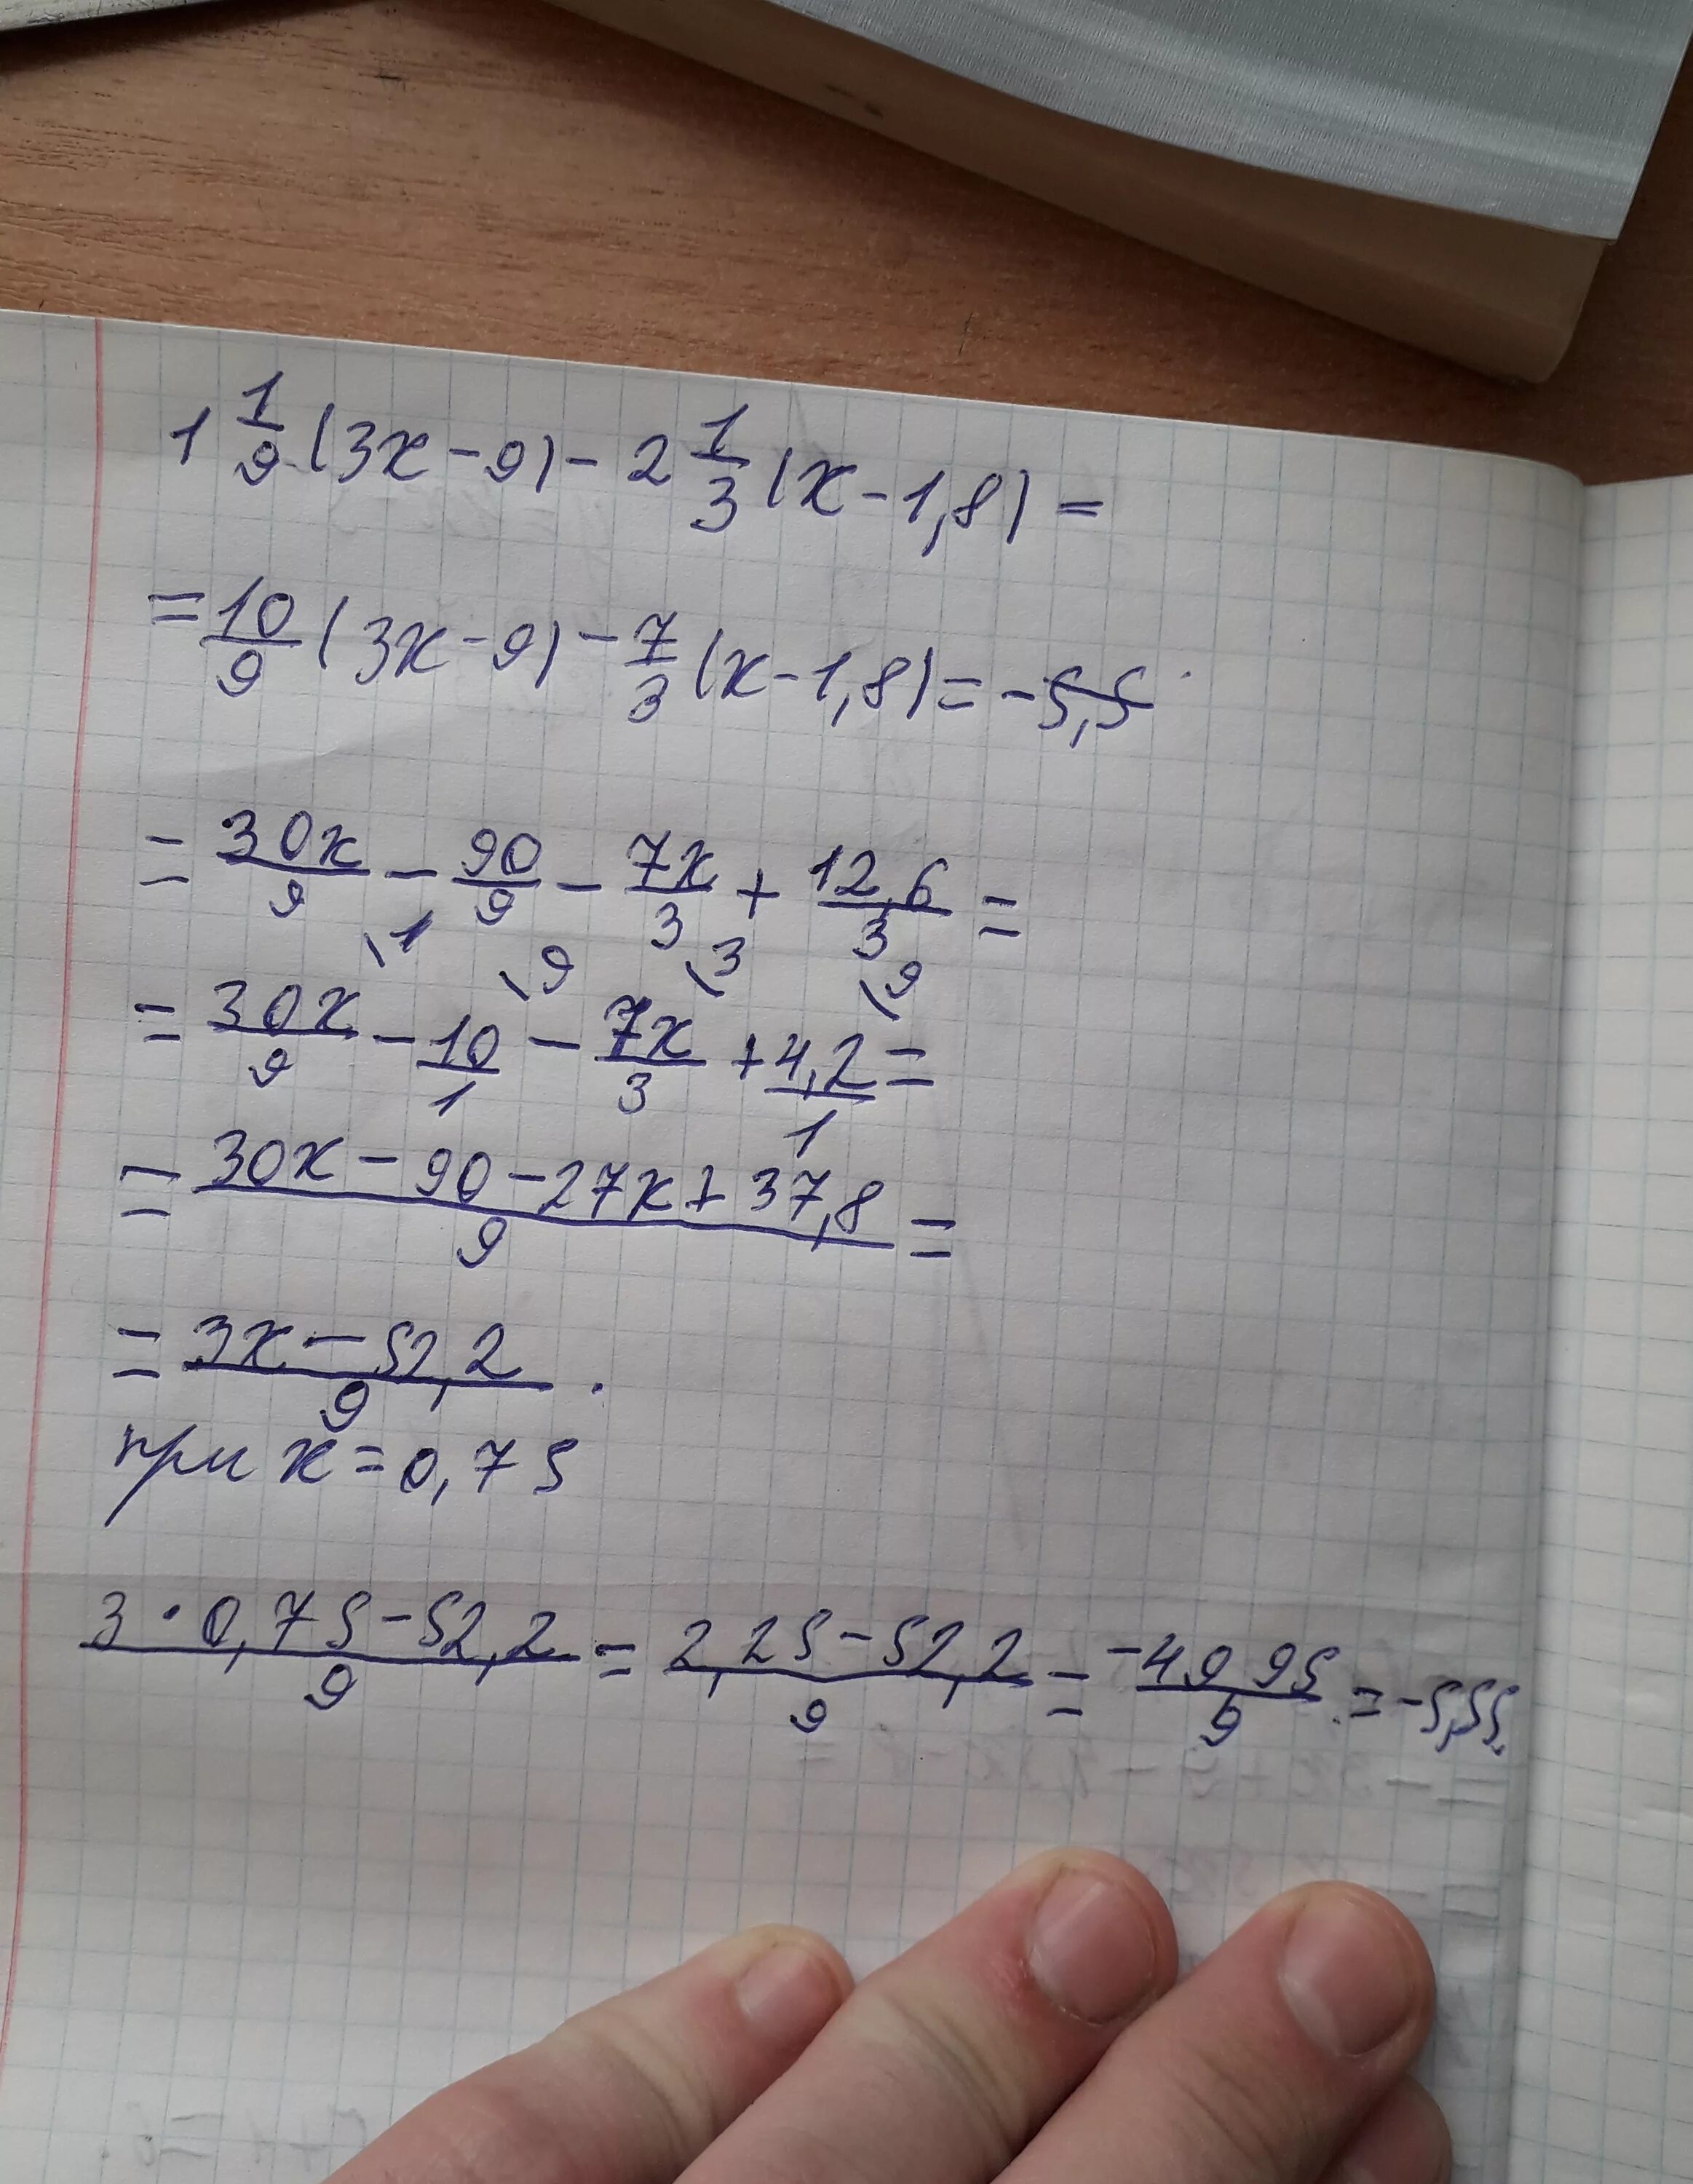 1 1/9 (3x - 9) - 2 1/3 (x - 1,8) =
= 10/9 (3x - 9) - 7/3 (x - 1,8) = -5,5
= 30x/9 - 90/9 - 7x/3 + 12,6/3 =
\1 \9 \3 \9
= 30x/9 - 10/1 - 7x/3 + 4,2/1 =
= 30x - 90 - 27x + 37,8/9 =
= 3x - 52,2/9 .
при x = 0,75
3 · 0,75 - 52,2/9 = 2,25 - 52,2/9 = -49 95/9 = -5,55